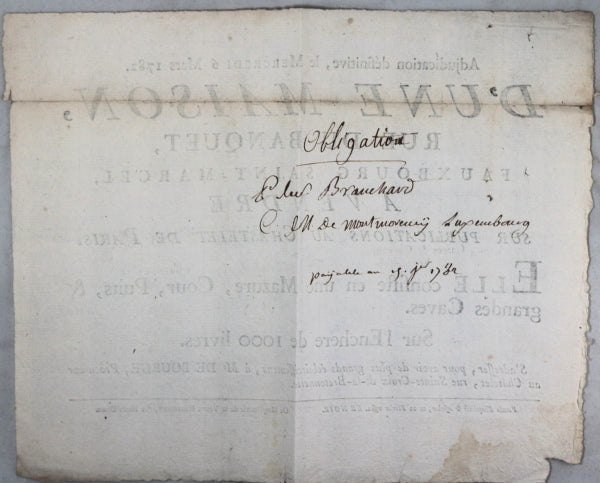 Obligation
Branchard
C. M. de montmorency Luxembourg
payable au 1782
Adjudication définitive, le MERCREDI 6 Mars 1782.
D'UNE MAISON,
RUE DU BANQUET,
FAUXBOURG SAINT-MARCEL,
A VENDRE
SUR PUBLICATIONS AU CHATELET DE PARIS.
ELLE consiste en une Mazure, Cour, Puits, &
grandes Caves.
Sur l'Enchere de 1000 livres.
S'adresser, pour avoir de plus grands éclaircissemens, à Me DE BOURGE, Procureur
au Châtelet, rue Sainte-Croix-de-la-Bretonnerie.